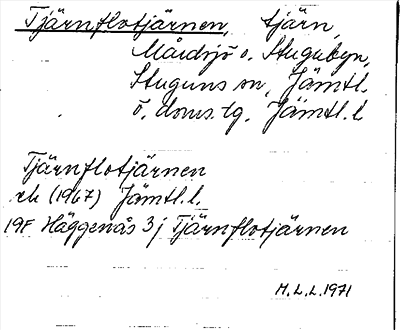 Tjärnflotjärnen, tjärn,
Mårdsjö o. Stugubyn,
Stuguns sn, Jämtl.
ö. doms.tg, Jämtl. l
Tjärnflotjärnen
rk (1967) Jämtl. l.
19F Häggenås 3j Tjärnflotjärnen
M.L.L. 1971